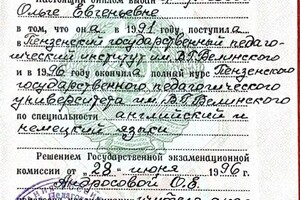 Настоящий диплом выдан
Ольге Евгеньевне
в том, что она в 1991 году поступила
в Пензенский государственный педаго-
гический институт им. В.Г. Белинского
и в 1996 году окончила полный курс Пензенского
государственного педагогического
университета им. В.Г. Белинского
по специальности английский и
немецкий языки
Решением Государственной экзаменационной
комиссии от " 28 " июня 1996 г.
Андросовой О.Е.
учителя